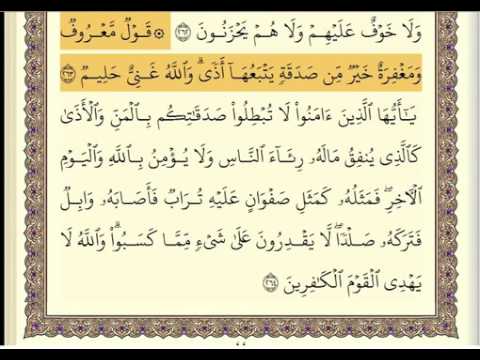 وَلَا خَوْفٌ عَلَيْهِمْ وَلَا هُمْ يَحْزَنُونَ ﴿٢٦٢﴾ ۞ قَوْلٌ مَّعْرُوفٌ
وَمَغْفِرَةٌ خَيْرٌ مِّن صَدَقَةٍ يَتْبَعُهَآ أَذًى ۗ وَٱللَّهُ غَنِىٌّ حَلِيمٌ ﴿٢٦٣﴾
يَـٰٓأَيُّهَا ٱلَّذِينَ ءَامَنُوا۟ لَا تُبْطِلُوا۟ صَدَقَـٰتِكُم بِٱلْمَنِّ وَٱلْأَذَىٰ
كَٱلَّذِى يُنفِقُ مَالَهُۥ رِئَآءَ ٱلنَّاسِ وَلَا يُؤْمِنُ بِٱللَّهِ وَٱلْيَوْمِ
ٱلْـَٔاخِرِ ۖ فَمَثَلُهُۥ كَمَثَلِ صَفْوَانٍ عَلَيْهِ تُرَابٌ فَأَصَابَهُۥ وَابِلٌ
فَتَرَكَهُۥ صَلْدًا ۖ لَّا يَقْدِرُونَ عَلَىٰ شَىْءٍ مِّمَّا كَسَبُوا۟ ۗ وَٱللَّهُ لَا
يَهْدِى ٱلْقَوْمَ ٱلْكَـٰفِرِينَ ﴿٢٦٤﴾